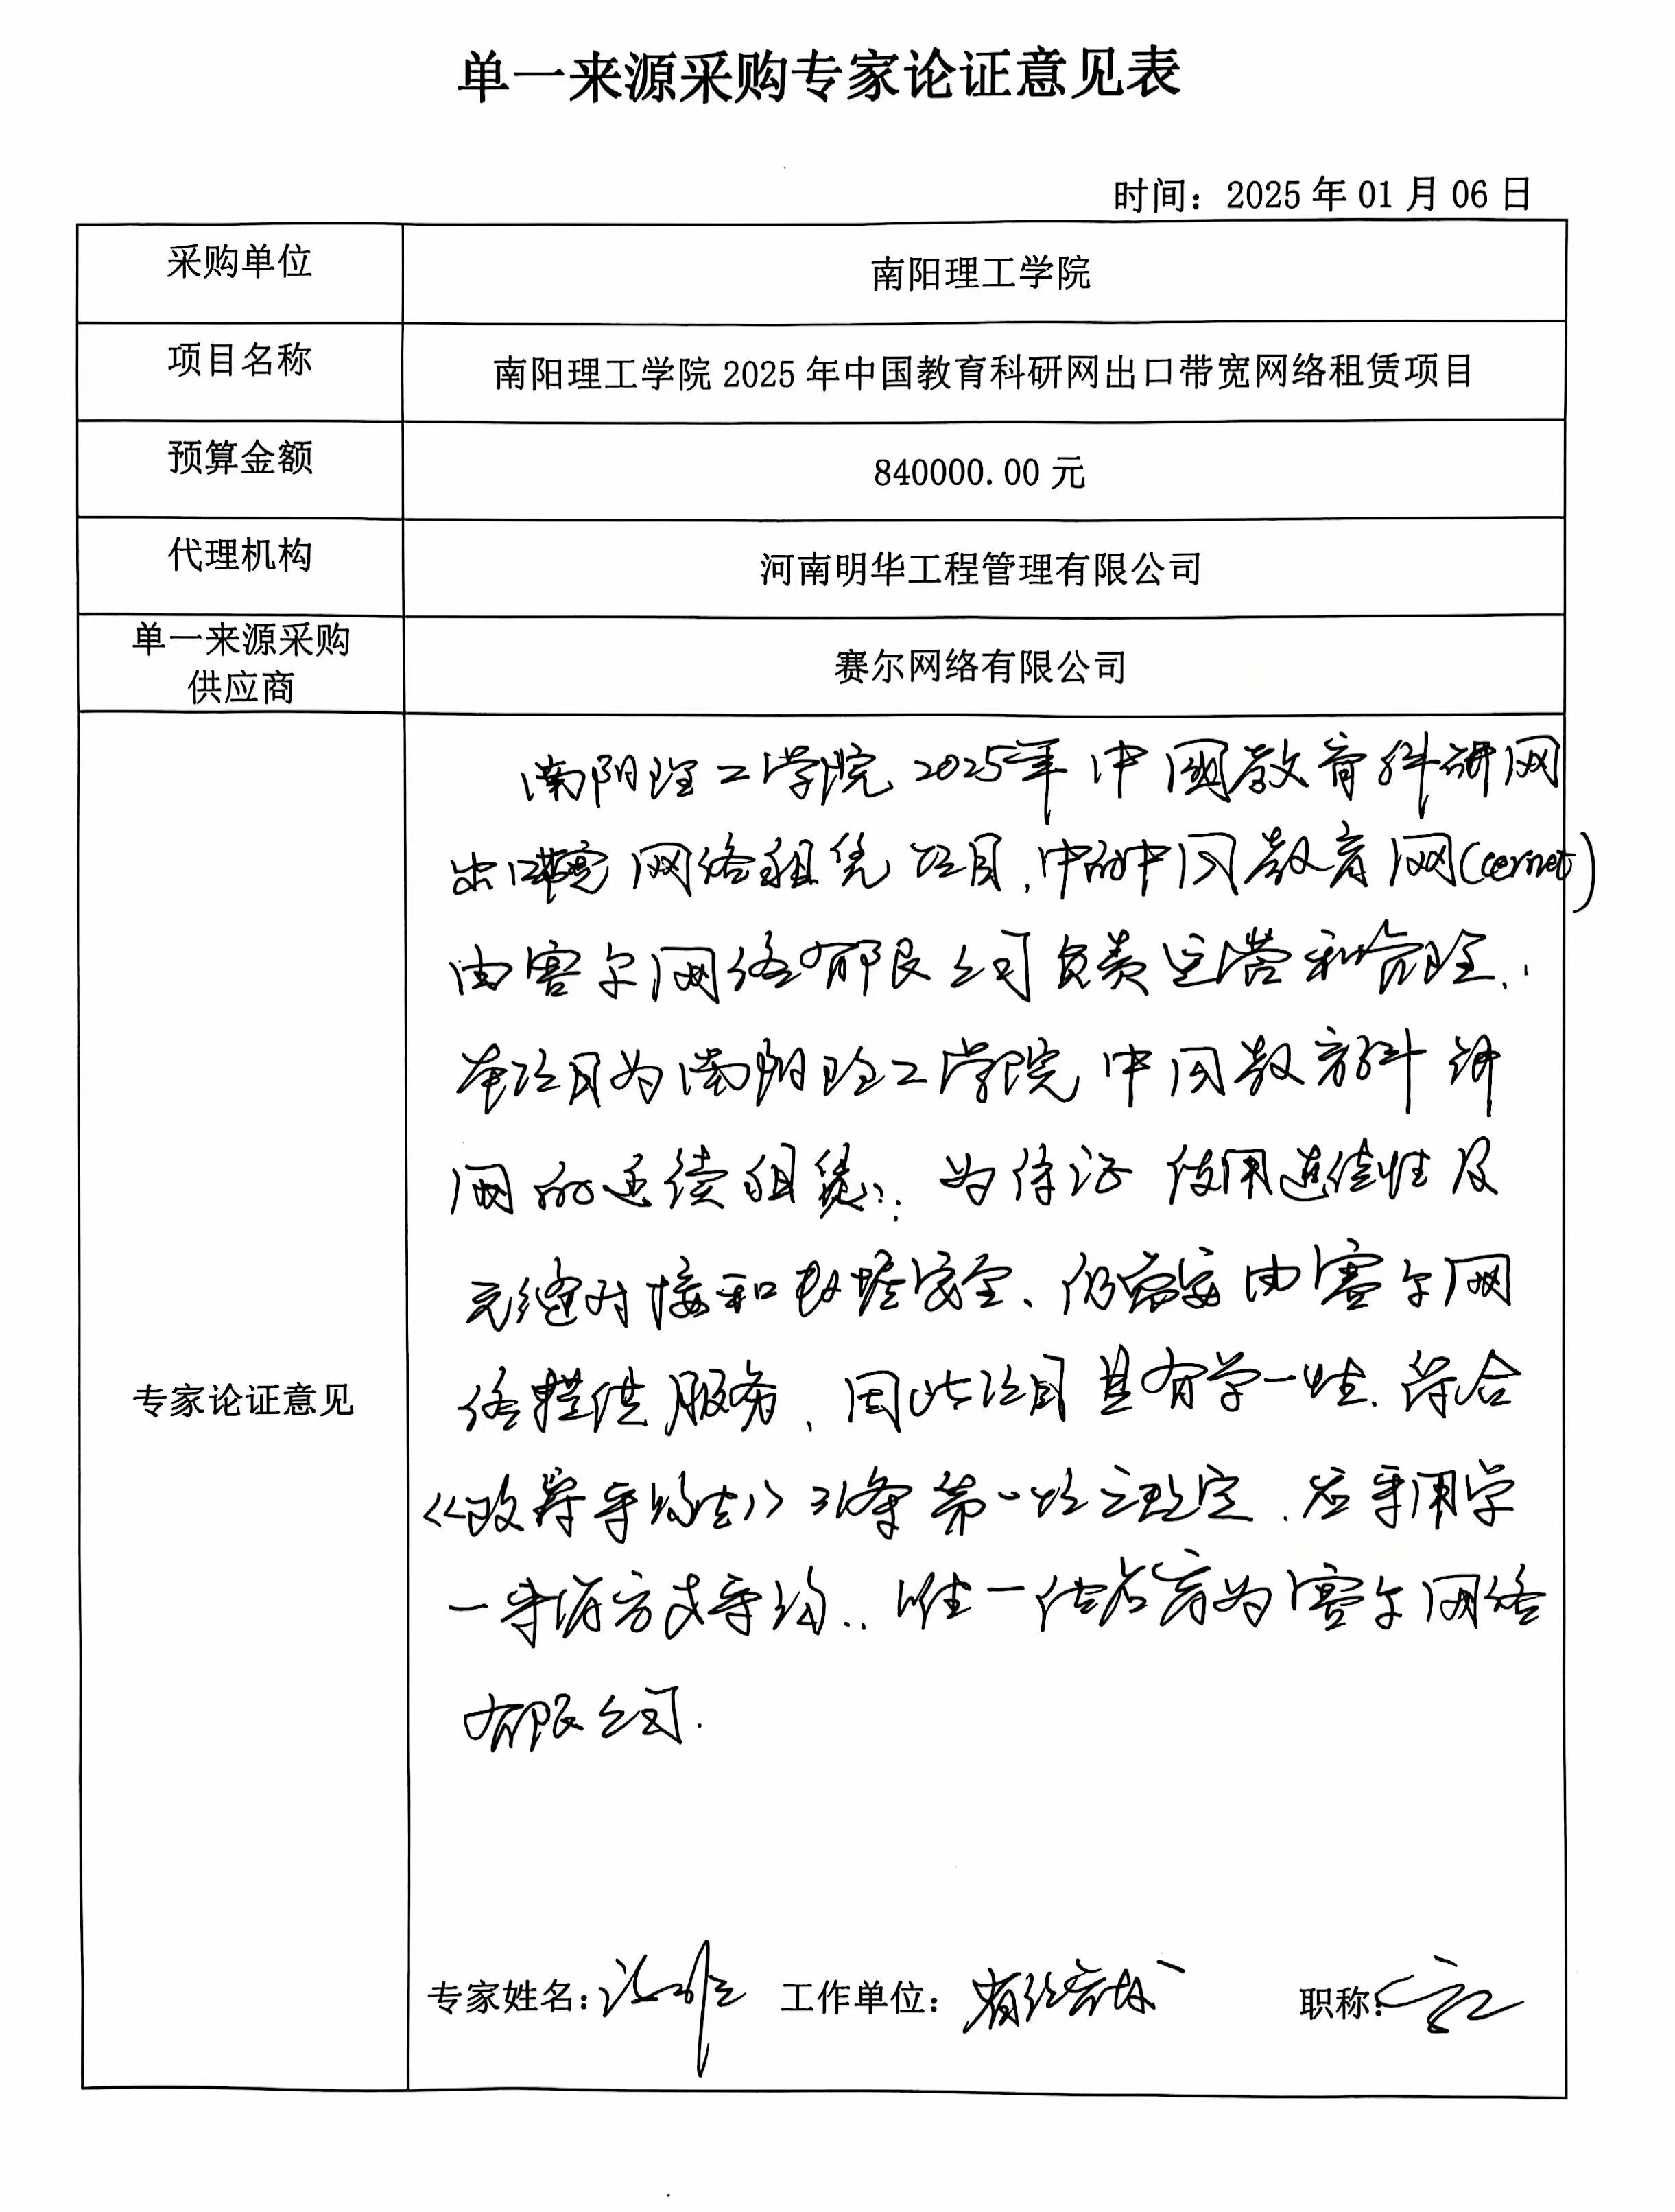 单一来源采购专家论证意见表
时间：2025年01月06日
采购单位
南阳理工学院
项目名称
南阳理工学院2025年中国教育科研网出口带宽网络租赁项目
预算金额
840000.00元
代理机构
河南明华工程管理有限公司
单一来源采购
供应商
赛尔网络有限公司
专家论证意见
南阳理工学院2025年中國教育科研网
出口带宽网络租赁项目,中的中国教育网(cernet)
由赛尔网络有限公司负责运营和管理.
本项目为南阳理工学院中国教育科研
网的连续租赁.为保证使用连续性及
无缝对接和数据安全、仍需要由赛尔网
络提供服务,因此项目具有单一性.符合
《政府采购法》31条第一项之规定.应采用单
一来源方式采购.唯一供应商为赛尔网络
有限公司.
专家姓名：
工作单位：
职称：